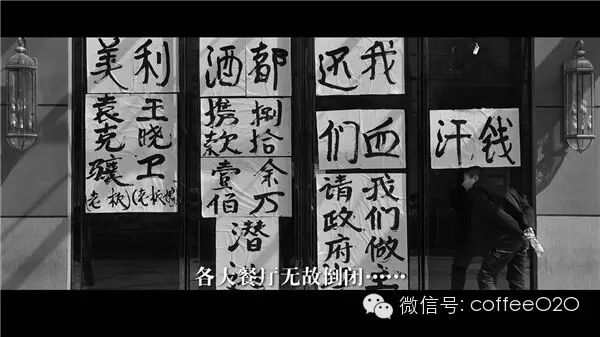 美利
袁克骧(老板)
王晓卫(老板娘)
酒都
携款壹佰
捌拾余万
潜
还我
们血
汗钱
请政府
我们做主
各大餐厅无故倒闭……
微信号: coffeeO2O